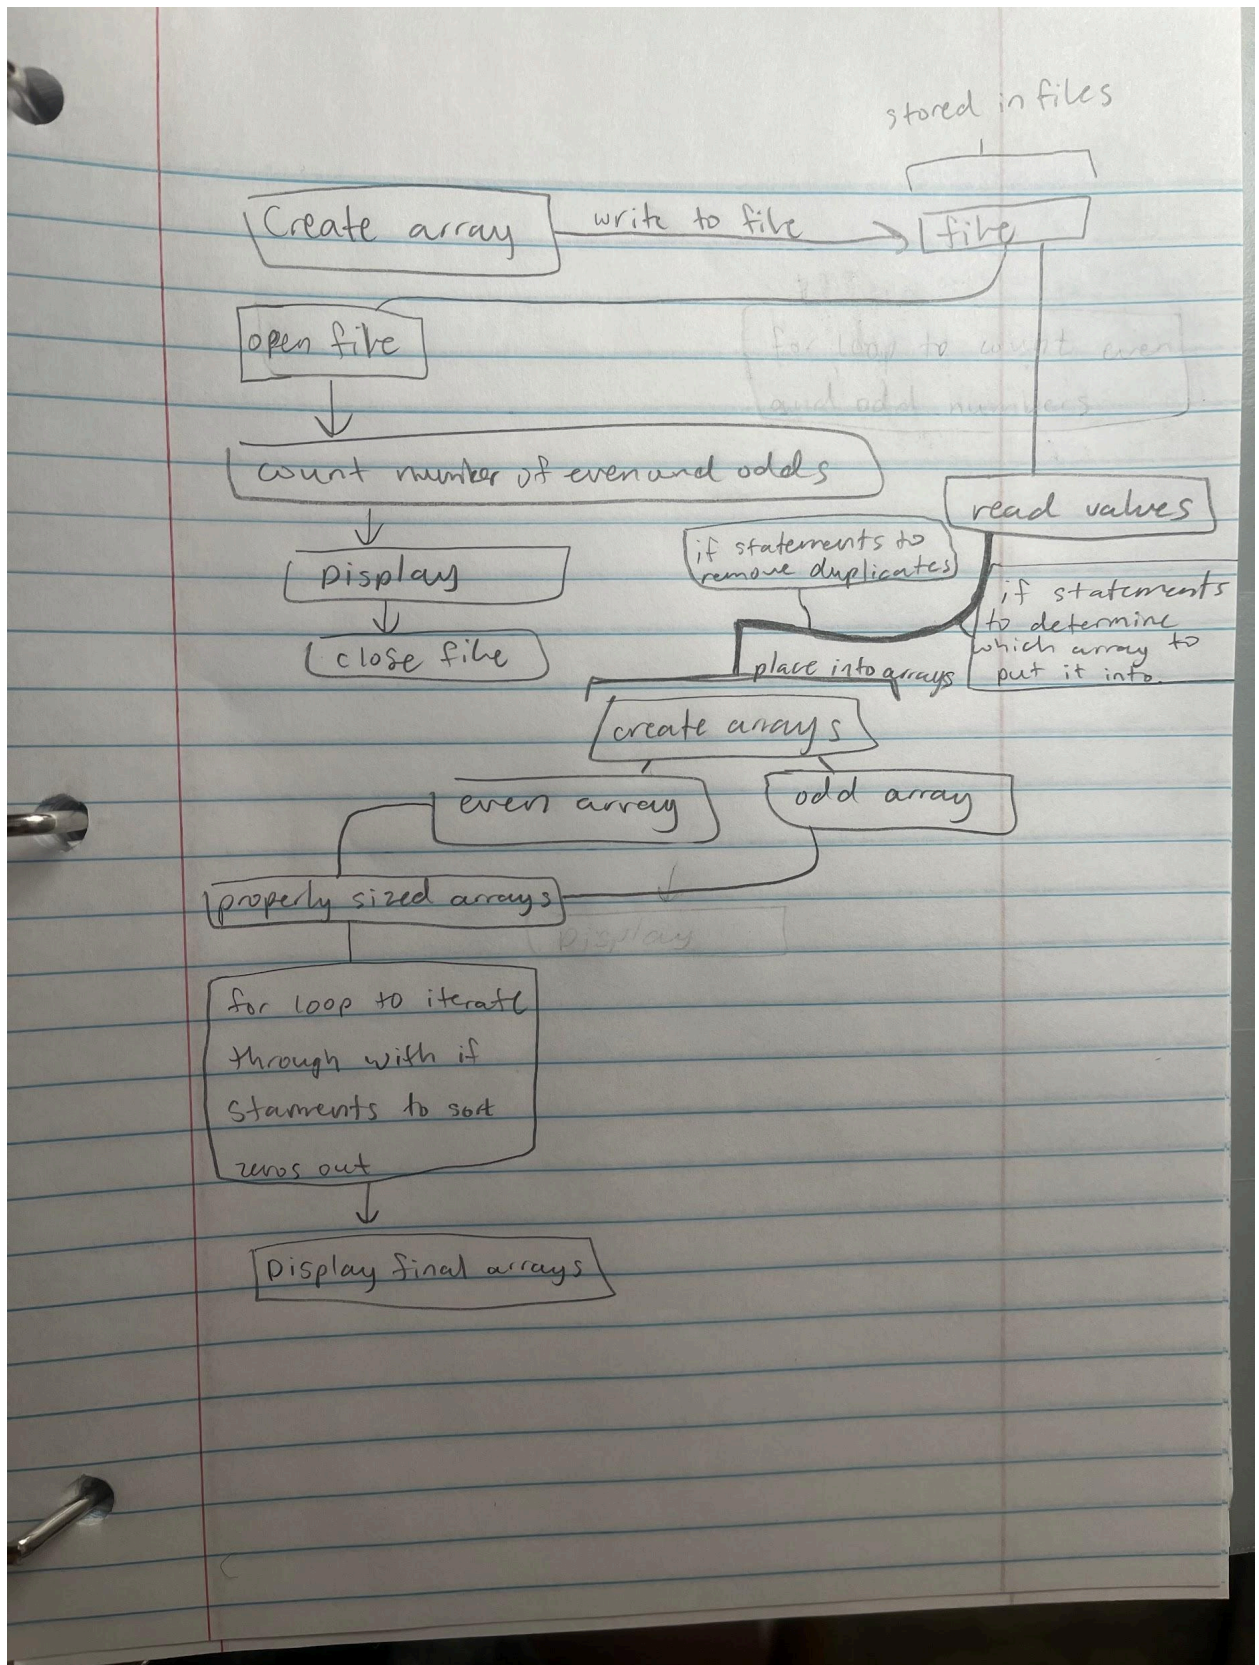 stored in files
Create array
write to file
file
open file
for loop to count even
and odd numbers
count number of even and odds
read values
if statements to
remove duplicates
Display
if statements
to determine
which array to
put it into.
close file
place into arrays
create arrays
even array
odd array
properly sized arrays
Display
for loop to iterate
through with if
staments to sort
zeros out
Display final arrays